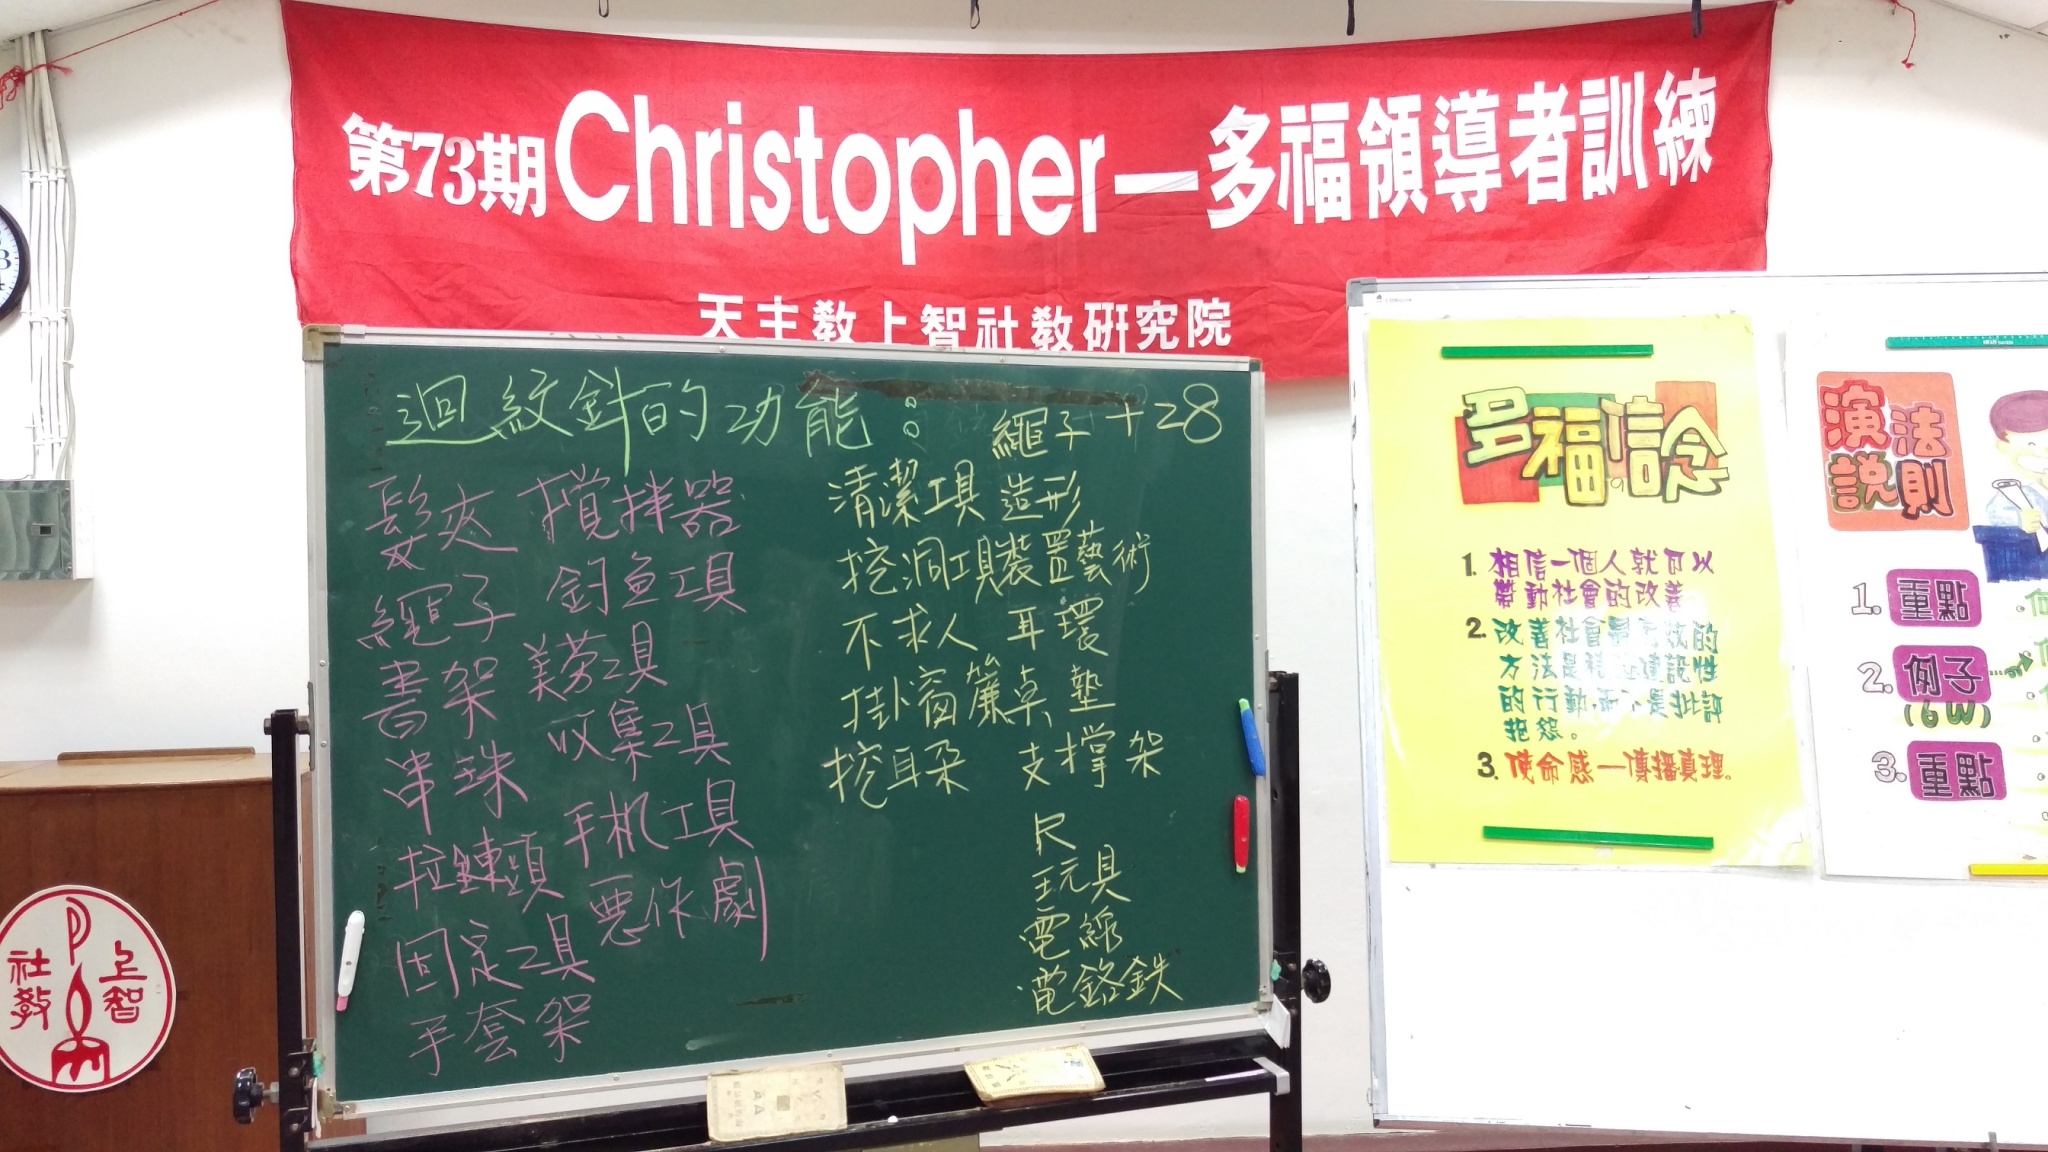 第73期Christopher—多福領導者訓練
天主教上智社教研究院
迴紋針的功能：
繩子 +28
髮夾
繩子
書架
串珠
拉鍊頭
固定工具
手套架
攪拌器
釣魚工具
美劳工具
收集工具
手机工具
惡作劇
清潔工具
挖洞工具
不求人
掛窗簾
挖耳朵
造形
裝置藝術
耳環
桌墊
支撐架
尺
玩具
電線
電鉻鉄
多福信念
1. 相信一個人就可以
帶動社會的改善
2. 改善社會最有效的
方法是積極建設性
的行動,而不是批評
抱怨。
3. 使命感—傳播真理。
演說法則
1. 重點
2. 例子
(6W)
3. 重點
上智
社教